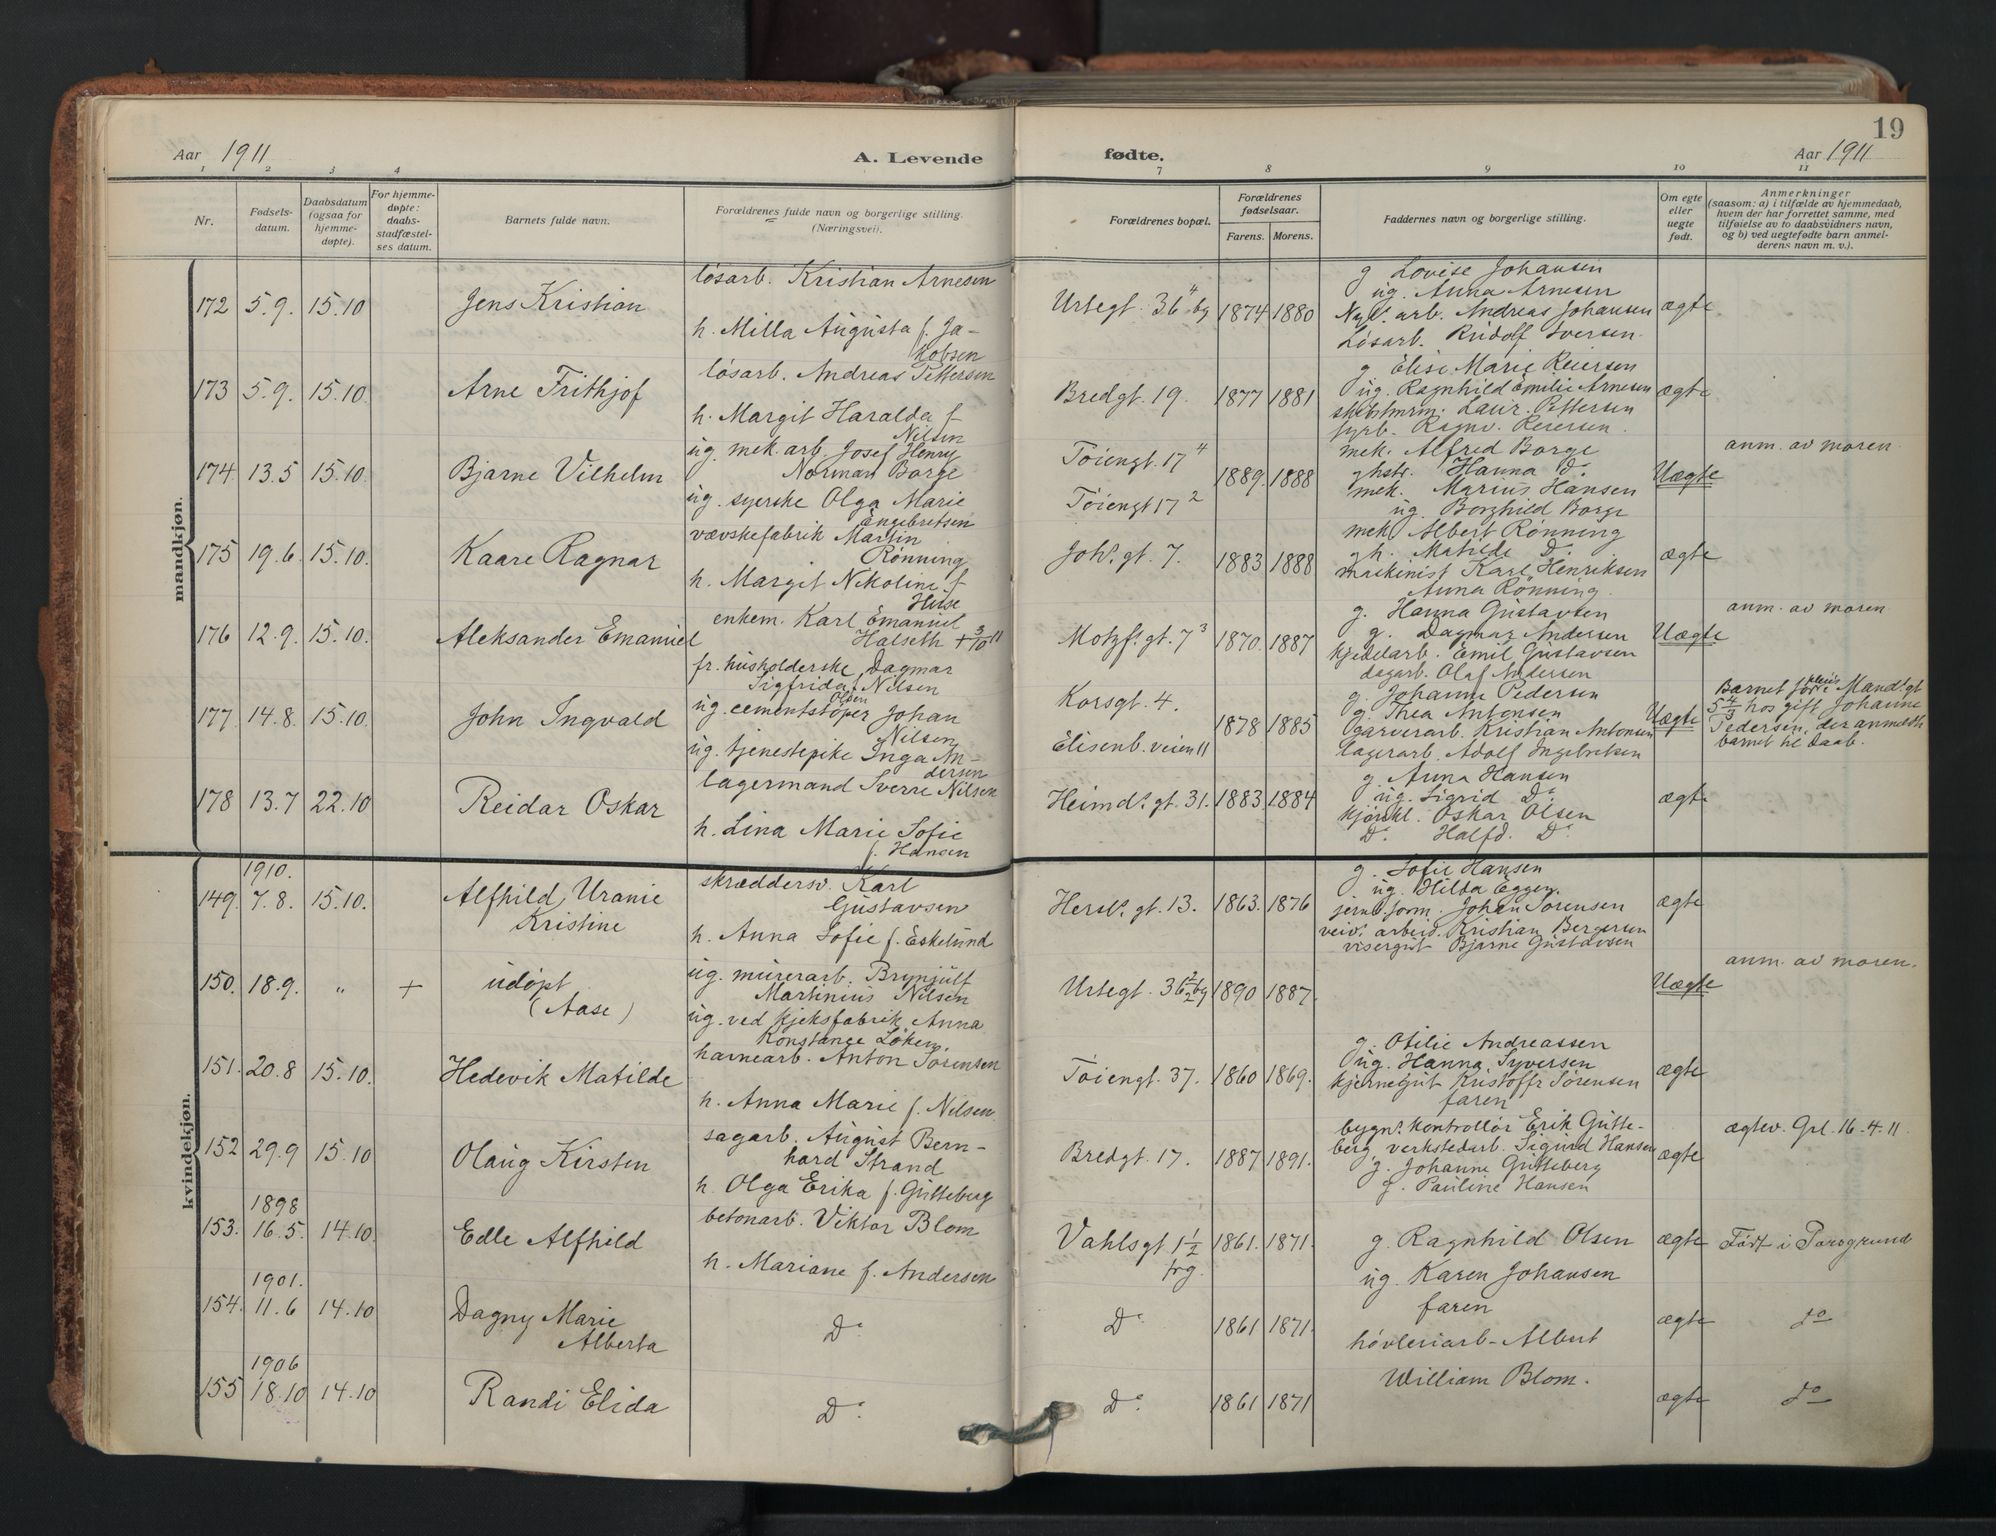 19
Aar 1911
A. Levende
fødte.
Aar 1911
1 2 3 4 7 8 9 10 11
Nr.
Fødsels-
datum.
Daabsdatum
(ogsaa for
hjemme-
døpte).
For hjemme-
døpte:
daabs-
stadfæstel-
ses datum.
Barnets fulde navn.
Forældrenes fulde navn og borgerlige stilling.
(Næringsvei).
Forældrenes bopæl.
Forældrenes
fødselsaar.
Farens. Morens.
Faddernes navn og borgerlige stilling.
Om egte
eller
uegte
født.
Anmerkninger
(saasom: a) i tilfælde av hjemmedaab,
hvem der har forrettet samme, med
tilføielse av to daabsvidners navn,
og b) ved uegtefødte barn anmel-
derens navn m. v.).
mandkjøn.
172 5.9. 15.10 Jens Kristian
løsarb. Kristian Arnesen
h. Milla Augusta f. Ja-
kobsen
Urtegt. 36 4 bg 1874 1880
g. Lovise Johansen
ug. Anna Arnesen
arb. Andreas Johansen
Løsarb. Rudolf Iversen.
ægte
173 5.9. 15.10. Arne Frithjof
løsarb. Andreas Pettersen
h. Margit Haralda f.
Nilsen
Bredgt. 19. 1877 1881
g. Elise Marie Reiersen
ug. Ragnhild Emilie Arnesen
Laur. Pettersen
fyrb. Ragnv. Reiersen.
ægte
174 13.5 15.10. Bjarne Vilhelm
ug. mek. arb. Josef Henry
Norman Borge
ug. syerske Olga Marie
Engebretsen
Tøiengt. 17 4
Tøiengt 17 2
1889. 1888
mek. Alfred Borge
ghstr. Hanna Do
mek. Marius Hansen
ug. Borghild Borge
Uægte
anm. av moren.
175 19.6. 15.10. Kaare Ragnar
vævskefabrik Martin
Rønning
h. Margit Nikoline f.
Huse
Johs. gt. 7. 1883 1888
mek. Albert Rønning
gh. Matilde Do.
maskinist Karl Henriksen
Anna Rønning.
ægte
176 12.9. 15.10. Aleksander Emanuel
enkem. Karl Emanuel
Halseth + 3/10 11
fr. husholderske Dagmar
Sigfrida f. Nilsen
Motzf. gt. 7 3 1870. 1887
g. Hanna Gustavsen
g. Dagmar Andersen
kjedelarb. Emil Gustavsen
dagarb. Olaf Andersen
Uægte
anm. av moren
177. 14.8. 15.10. John Ingvald
Olsen
ug. cementstøper Johan
Nilsen
ug. tjenestepike Inga An-
dersen
Korsgt. 4.
Elisenb. veien 11
1878 1885
g. Johanne Pedersen
g. Thea Antonsen
garverarb. Kristian Antonsen
lagerarb. Adolf Ingebretsen
Uægte
Barnet født i Mands. gt
5 4/3 hos gift Johanne
Pedersen, der anmeldte
barnet til daab.
178 13.7 22.10 Reidar Oskar
lagermand Sverre Nilsen
h. Lina Marie Sofie
f. Hansen
Heimds. gt. 31. 1883 1884
g. Anna Hansen
ug. Sigrid Do.
Oskar Olsen
Do. Halfd. Do.
ægte
kvindekjøn.
1910.
149. 7.8. 15.10. Alfhild Uranie
Kristine
skræddersv. Karl
Gustavsen
h. Anna Sofie f. Eskelund
Hersl. gt. 13. 1863. 1876
g. Sofie Hansen
ug. Hilda Eggen.
jernb. form. Johan Sørensen
veiv. arbeid. Kristian Bergersen
visergut Bjarne Gustavsen
ægte
150. 18.9. „ + udøpt
(Aase)
ug. murerarb. Brynjulf
Martinius Nilsen
ug. ved kjeksfabrik Anna
Konstance Løken.
Urtegt. 36 2/2 bg 1890 1887.
Uægte
anm. av moren.
151. 20.8 15.10. Hedevik Matilde
havnearb. Anton Sørensen
h. Anna Marie f. Nilsen
Tøiengt. 37. 1860 1869.
g. Otilie Andreassen
ug. Hanna Syversen
kjørnegut Kristoffr Sørensen
faren
ægte
152 29.9 15.10 Olaug Kirsten
sagarb. August Bern-
hard Strand
h. Olga Erika f. Gutteberg
Bredgt. 17. 1887 1891.
bygn. kontrollør Erik Gutte-
berg, verkstedarb. Sigurd Hansen
g. Johanne Gutteberg
g. Pauline Hansen
ægte
ægtev. Grl. 16.4.11.
1898
153. 16.5. 14.10. Edle Alfhild
betonarb. Viktor Blom
h. Mariane f. Andersen
Vahlsgt 1 1/2
frg.
1861. 1871.
g. Ragnhild Olsen
ug. Karen Johansen
ægte
Født i Porsgrund
1901.
154. 11.6 14.10 Dagny Marie
Alberta
Do Do 1861 1871.
faren
høvleriarb. Albert
ægte do
1906
155 18.10 14.10 Randi Elida
Do Do. 1861 1871
William Blom.
ægte do